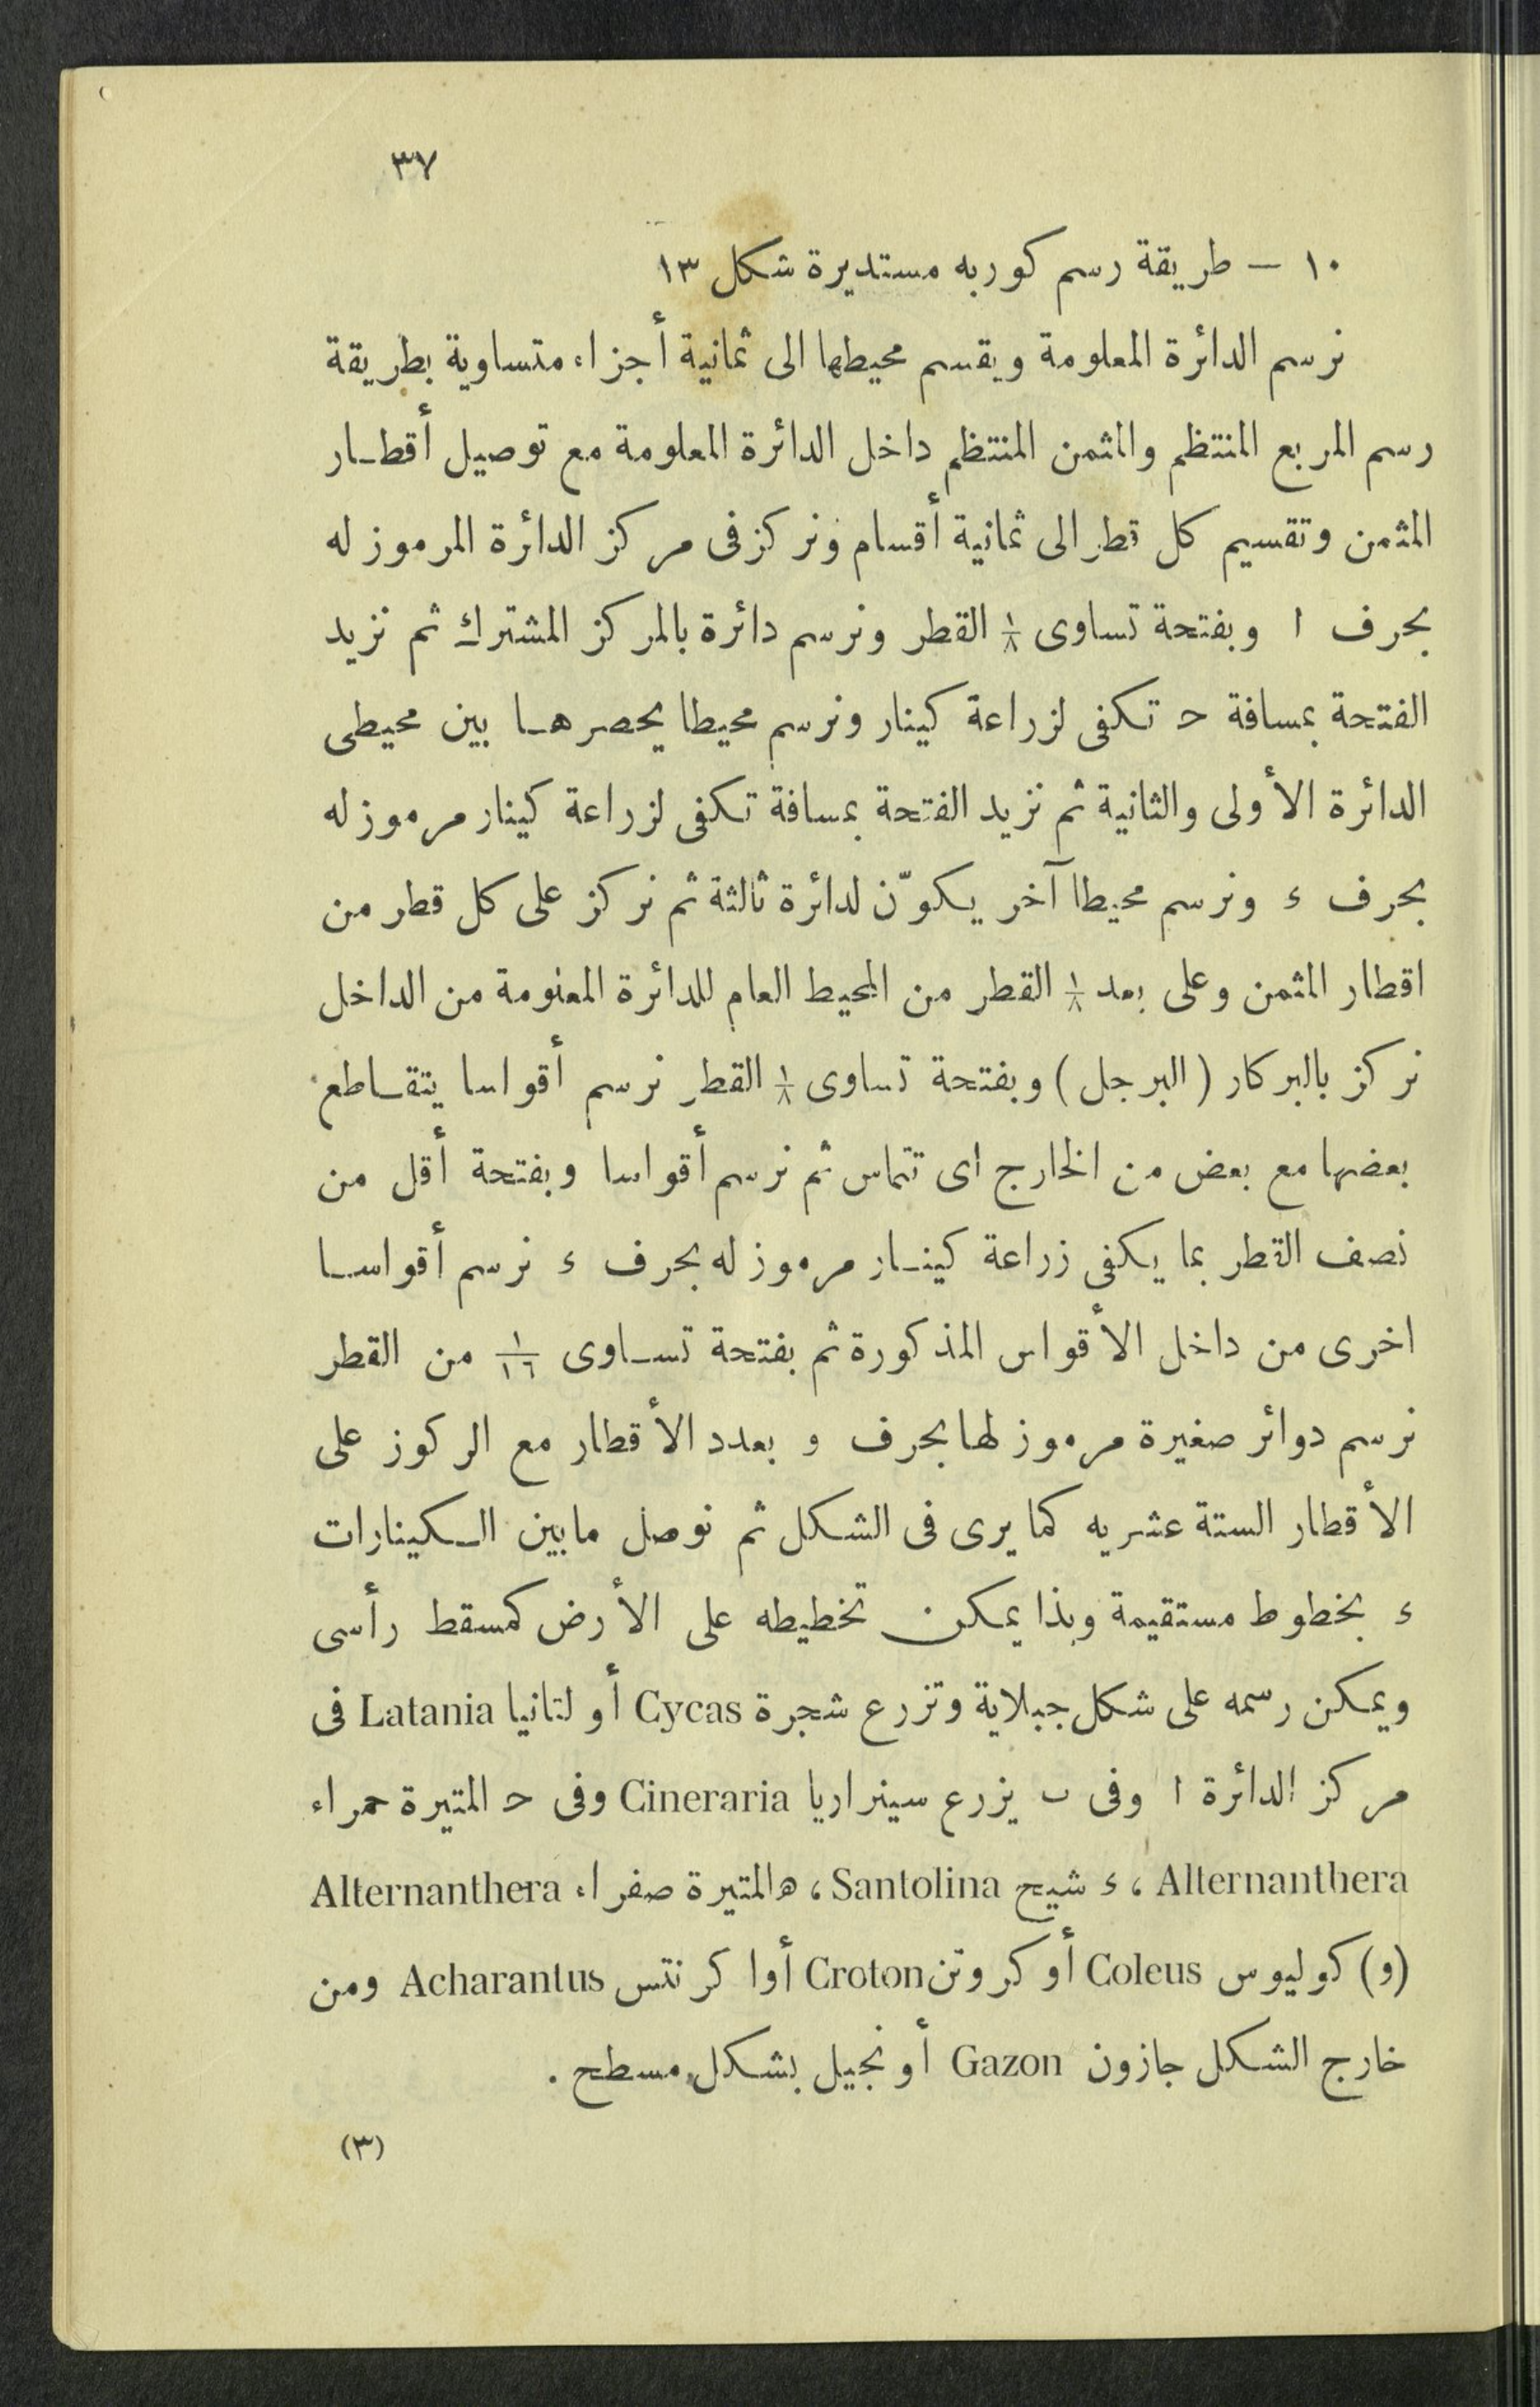 ٣٧
١٠ — طريقة رسم كوربه مستديرة شكل ١٣
نرسم الدائرة المعلومة ويقسم محيطها الى ثمانية أجزاء متساوية بطريقة
رسم المربع المنتظم والمثمن المنتظم داخل الدائرة المعلومة مع توصيل أقطار
المثمن وتقسيم كل قطر الى ثمانية أقسام ونركز فى مركز الدائرة المرموز له
بحرف ا وبفتحة تساوى ١/٨ القطر ونرسم دائرة بالمركز المشترك ثم نزيد
الفتحة بمسافة ح تكفى لزراعة كينار ونرسم محيطا يحصرها بين محيطى
الدائرة الأولى والثانية ثم نزيد الفتحة بمسافة تكفى لزراعة كينار مرموز له
بحرف ء ونرسم محيطا آخر يكوّن لدائرة ثالثة ثم نركز على كل قطر من
اقطار المثمن وعلى بعد ١/٨ القطر من المحيط العام للدائرة المعنومة من الداخل
نركز بالبركار (البرجل) وبفتحة تساوى ١/٨ القطر نرسم أقواسا يتقاطع
بعضها مع بعض من الخارج اى تتماس ثم نرسم أقواسا وبفتحة أقل من
نصف القطر بما يكفى زراعة كينار مرموز له بحرف ء نرسم أقواسا
اخرى من داخل الأقواس المذكورة ثم بفتحة تساوى ١/١٦ من القطر
نرسم دوائر صغيرة مرموز لها بحرف و بعدد الأقطار مع الركوز على
الأقطار الستة عشريه كما يرى فى الشكل ثم نوصل مابين الكينارات
ء بخطوط مستقيمة وبذا يمكن تخطيطه على الأرض كمسقط رأسى
ويمكن رسمه على شكل جبلاية وتزرع شجرة Cycas أو لتانيا Latania فى
مركز الدائرة ا وفى ب يزرع سينراريا Cineraria وفى ح المتيرة حمراء
Alternanthera ، ء شيح Santolina ، ه المتيرة صفراء Alternanthera
(و) كوليوس Coleus أو كروتن Croton أوا كرنتس Acharantus ومن
خارج الشكل جازون Gazon أو نجيل بشكل مسطح .
(٣)